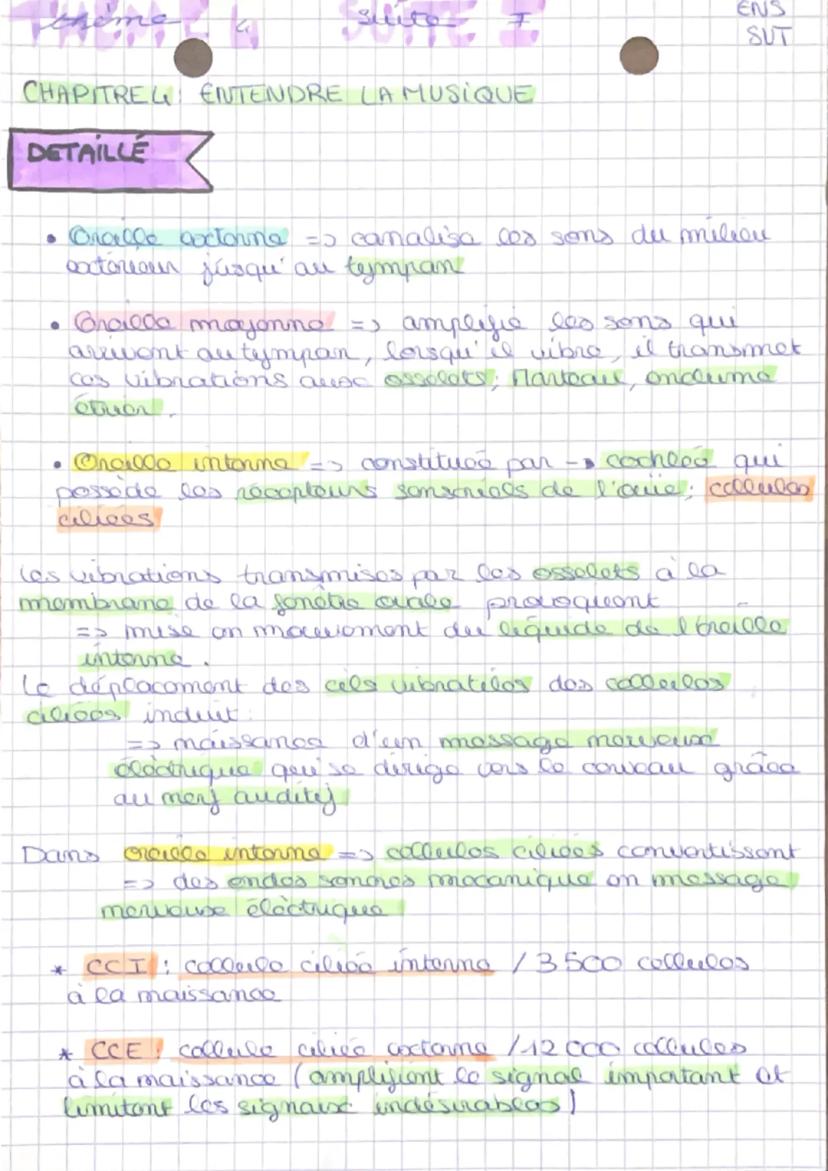 thème 4 suite I
ENS
SVT
CHAPITRE 4: ENTENDRE LA MUSIQUE
DETAILLÉ
• Oreille externe => canalise les sons du milieu
extérieur jusqu'au tympan
• Oreille moyenne => amplifie les sons qui
arrivent au tympan, lorsqu'il vibre, il transmet
ces vibrations aux osselets; Marteau, enclume
étrier.
• Oreille interne => constituée par -> cochlée qui
possède les récepteurs sensoriels de l'ouïe; cellules
ciliées
Les vibrations transmises par les osselets à la
membrane de la fenêtre ovale provoquent
=> mise en mouvement du liquide de l'oreille
interne.
Le déplacement des cels vibratiles des cellules
ciliées induit:
=> naissance d'un message nerveux
électrique qui se dirige vers le cerveau grâce
au nerf auditif
Dans oreille interne => cellules ciliées convertissent
=> des ondes sonores mécanique en message
nerveuse électrique
* CCI : cellule ciliée interne / 3 500 cellules
à la naissance
* CCE : cellule ciliée externe / 12 000 cellules
à la naissance (amplifient le signal important et
limitent les signaux indésirables)